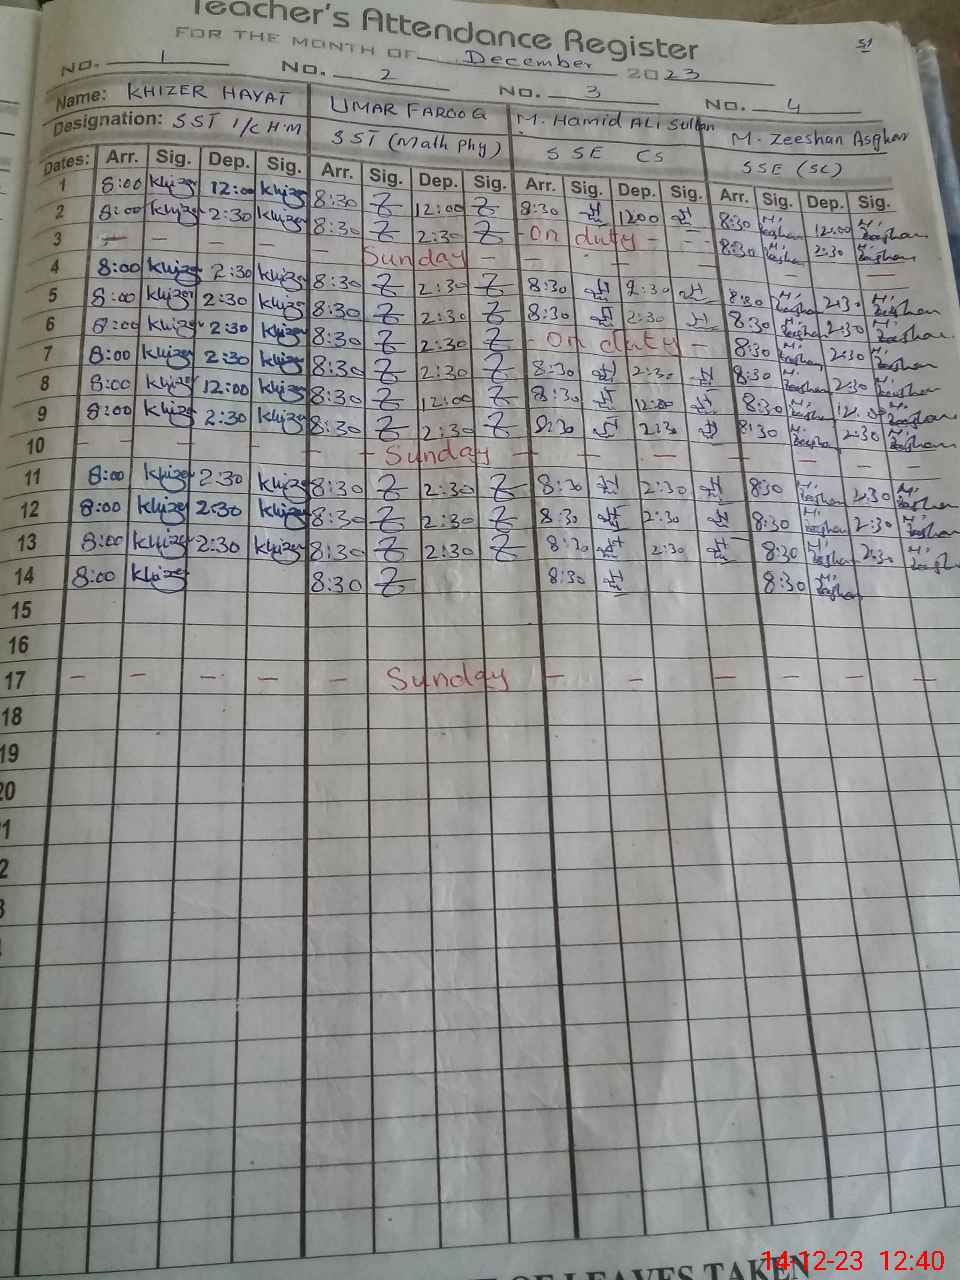 Teacher's Attendance Register
51
FOR THE MONTH OF December 2023
NO. 1 NO. 2 NO. 3 NO. 4
Name: KHIZER HAYAT UMAR FAROOQ M. Hamid ALi Sultan M. Zeeshan Asghar
Designation: SST I/C H.M SST (Math Phy) SSE CS SSE (SC)
Dates: Arr. Sig. Dep. Sig. Arr. Sig. Dep. Sig. Arr. Sig. Dep. Sig. Arr. Sig. Dep. Sig.
1 8:00 Khizer 12:00 Khizer 8:30 12:00 8:30 1200 8:30 12:00
2 8:00 Khizer 2:30 Khizer 8:30 2:30 - On duty - - 8:30 2:30
3 - - - - - Sunday - - - - - - -
4 8:00 Khizer 2:30 Khizer 8:30 2:30 8:30 2:30 8:30 2:30
5 8:00 Khizer 2:30 Khizer 8:30 2:30 8:30 2:30 8:30 2:30
6 8:00 Khizer 2:30 Khizer 8:30 2:30 - On duty - 8:30 2:30
7 8:00 Khizer 2:30 Khizer 8:30 2:30 8:30 2:30 8:30 2:30
8 8:00 Khizer 12:00 Khizer 8:30 12:00 8:30 12:00 8:30 12:00
9 8:00 Khizer 2:30 Khizer 8:30 2:30 8:30 2:30 8:30 2:30
10 - - - - - Sunday - - - - - - -
11 8:00 Khizer 2:30 Khizer 8:30 2:30 8:30 2:30 8:30 2:30
12 8:00 Khizer 2:30 Khizer 8:30 2:30 8:30 2:30 8:30 2:30
13 8:00 Khizer 2:30 Khizer 8:30 2:30 8:30 2:30 8:30 2:30
14 8:00 Khizer 8:30 8:30 8:30
15
16
17 - - - - - Sunday - - - - - -
18
19
20
OF LEAVES TAKEN
14-12-23 12:40